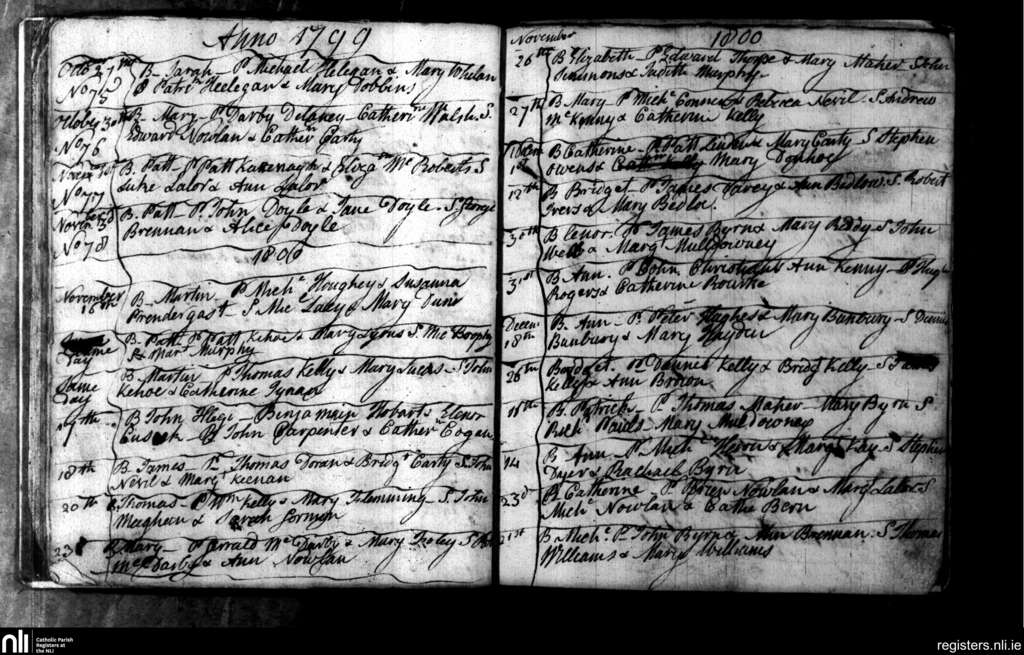 Anno 1799
Octob 27th B Sarah P Michael Helegan & Mary Whelan
No 75 S Patrn Heelegan & Mary Dobbins
October 30th B Mary P Darby Delaney Catherine Walsh S
No 76 Edward Nowlan & Cathern Carty
B Patt P Patt Kavanagh & Eliza Mc Roberts S
No 77 Luke Lalor & Ann Lalor
Novem 3d B. Patt P. John Doyle & Jane Doyle. S George
No 78 Brennan & Alice Doyle
1800
November B Martin P Michl Houghey & Susanna
16th Prendergast S Mic Lacey & Mary
B Patt P Patt Kehoe & Mary Lyons S Mc Brophy
Day & Mary Murphy
Same B Martin P Thomas Kelly & Mary S John
Day Kehoe & Catherine Tynan
9th B John Benjamain Hobarts Elenor
Cusack S John Carpenter & Cathern Eogan
18th B James P Thomas Doran & Bridgt Carty S John
Nevil & Mary Keenan
20th B Thomas P Wm Kelly & Mary Flemming S. John
Meaghean & Sarah Gorman
23 B Mary P Jerrald Mc Darby & Mary Foley S
Mc Darby & Ann Nowlan
November 1800
26th B Elizabeth P Edward Thorpe & Mary Maher S John
Semmons & Judith Murphy
27th B Mary P Michl Connor & Rebecca Nevil. S Andrew
Mc Kenny & Catherine Kelly
1st B Catherine P Patt & Mary Canty S Stephen
Owens & Mary Donhoe
12th B Bridget P James Davey & Ann Bedlow S. Robert
Ivers & Mary Bedlow
30th B Elenor. P James Byrn & Mary Reddy S John
Webb & Margt Mulldowney
31st B Ann. P John Christian & Ann Kenny P Hugh
Rogers & Catherine Rourke
Decem B. Ann P. Peter Hughes & Mary Bunbury S Dennis
18th Bunbury & Mary Hayden
26th Bridget. P Dennis Kelly & Bridgt Kelly S James
Kelly & Ann Brown
B Patrick P Thomas Maher Mary Byrn S
Richd Mary Muldowney
14 B Ann P Michl & Mary Kay S Stephen
Dwyer & Rachael Byrn
23d B Catherine P Brien Nowlan & Mary Lalor S
Michl Nowlan & Cathe Bern
21st B Michl P. John Byrn & Ann Brennan S Thomas
Williams & Mary Williams
nli Catholic Parish
Registers at
the NLI
registers.nli.ie